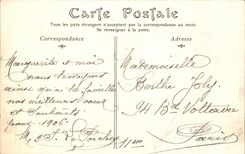 Carte Postale
Tous les pays étrangers n'acceptent pas la correspondance au recto.
Se renseigner à la poste.
Correspondance
Adresse
Marguerite et moi
nous
ainsi qu'à la famille
nos meilleurs voeux
et Souhaits
pour 1906
Mademoiselle
Berthe Joly
94 Bd Voltaire
Paris
11em